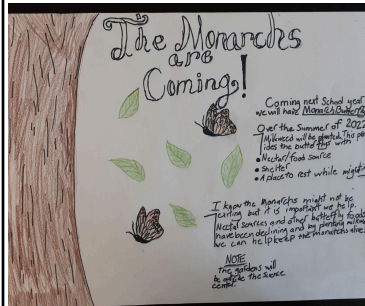 The Monarchs
are
Coming!
Coming next School year
we will have Monarch Butterf
Over the Summer of 2022
Milkweed will be planted. This pl
ides the butterflys with
• Nectar/food source
• Shelter
• A place to rest while migrati
I know the monarchs might not be
but it is important we help.
Nectar sources and other butterfly foods
have been declining and by planting milkw
we can help keep the monarchs alive
NOTE
The gardens will
be outside the science
center.